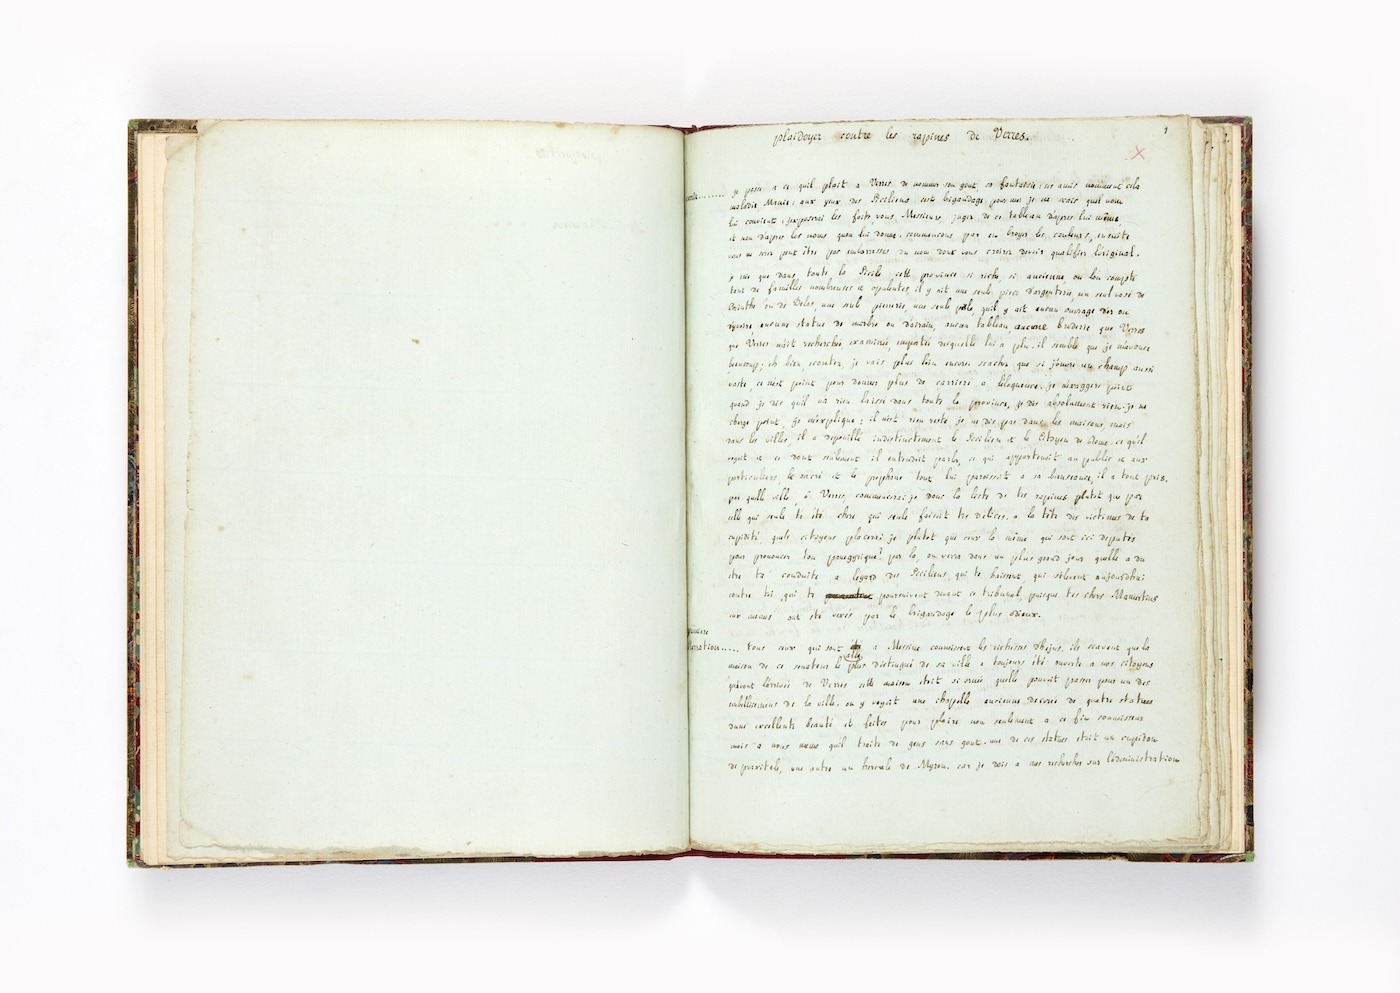 plaidoyer contre les rapines de Verres.
1
X
je passe a ce quil plait a Verres de nommer son gout, sa fantaisie: ses amis nomment cela
maladie, Manie: aux yeux des Siciliens cest brigandage pour moi je ne scais quel nom
lui convient: jexposerai les faits, vous, Messieurs, jugez de ce tableau dapres lui même,
et non dapres les noms quon lui donne. commencons par en broyer les couleurs, ensuite
vous ne serez peut être pas embarrassés du nom dont vous croirez devoir qualifier l'original.
je nie que dans toute la Sicile, cette province si riche, si ancienne, ou lon compte
tant de familles nombreuses et opulentes, il y ait une seule piece d'argenterie, un seul vase de
Corinthe ou de Delos, une seule pierrerie, une seule perle, quil y ait aucun ouvrage d'or ou
d'yvoire, aucune statue de marbre ou d'airain, aucun tableau, aucune broderie que Verres
que Verres nait recherchée examinée, emportée desquelle lui a plu. il semble que je m'avance
beaucoup; eh bien, ecoutez, je vais plus loin encore. scachez que si j'ouvre un champ aussi
vaste, ce nest point pour donner plus de carriere a leloquence. je nexaggere point
quand je dis quil na rien laissé dans toute la province, je dis absolument rien. je ne
charge point, je m'explique; il nest rien resté je ne dis pas dans les maisons, mais
dans les villes, il a depouillé indistinctement le Sicilien et le Citoyen de Rome. ce qu'il
voyait et ce dont seulement il entendoit parler, ce qui appartenoit au public et aux
particuliers, le sacré et le prophane tout lui paroissoit a sa bienseance, il a tout pris.
par quelle ville, ô Verres, commencerai-je dans la liste de tes rapines plutot que par
celle qui seule ta été chere qui seule faisoit tes délices. a la tête des victimes de ta
cupidité, quels citoyens placerai je plutot que ceux la même qui sont ici deputés
pour prononcer ton panegyrique? par la, on verra dans un plus grand jour quelle a du
etre ta conduite a legard des Siciliens, qui te haissent, qui selevent aujourdhui
contre toi, qui te poursuivent devant ce tribunal, puisque tes chers Mamertins
eux memes ont été vexés par le brigandage le plus odieux.
premiere
narration..... tous ceux qui sont allés a Messine connoissent les richesses dhejus. ils scavent que la
maison de ce senateur le plus distingué de sa ville a toujours été ouverte a nos citoyens
quavant larrivée de Verres cette maison etoit si ornée quelle pouvoit passer pour un des
embellissemens de la ville. on y voyoit une chapelle ancienne decorée de quatre statues
dune excellente beauté et faites pour plaire non seulement a ce fin connoisseur
mais a nous meme quil traite de gens sans gout. une de ces statues etoit un cupidon
de praxitele, une autre un hercule de Myron. car je dois a mes recherches sur l'administration